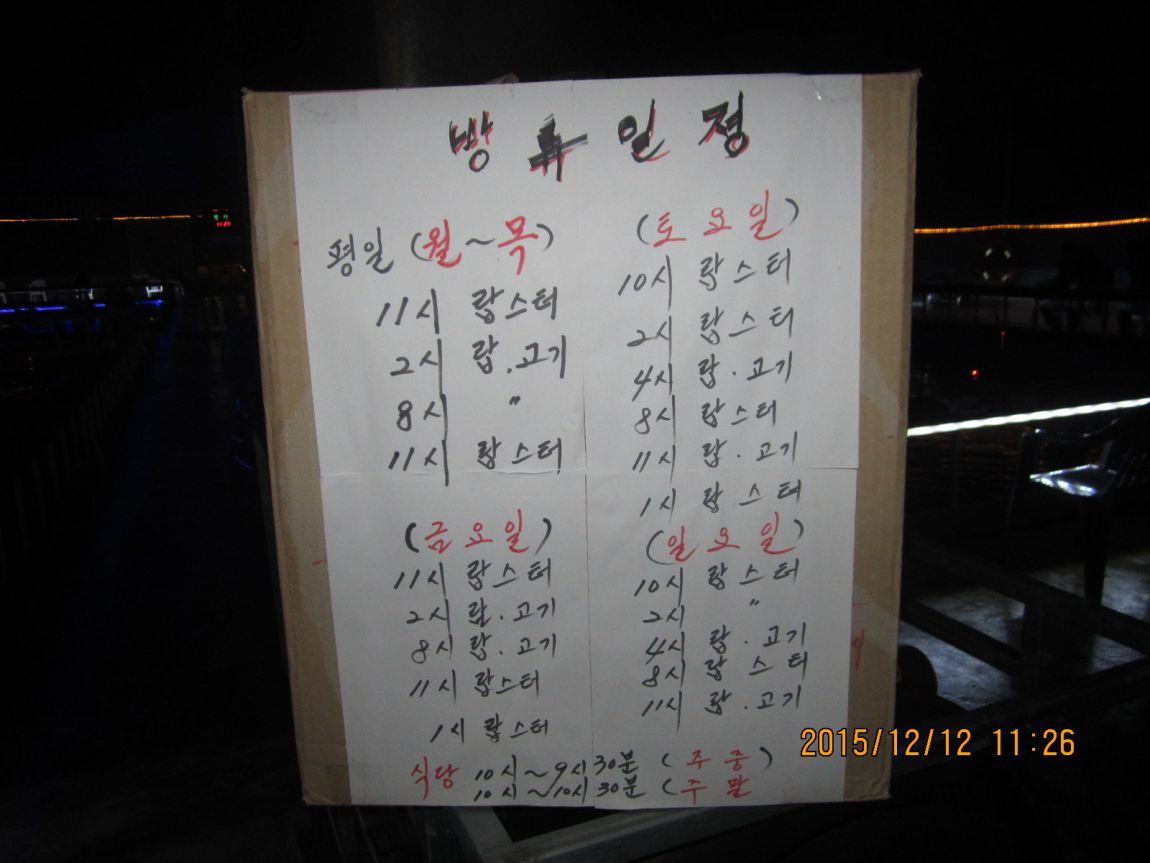 방류일정
평일 (월~목)
11시 랍스터
2시 랍.고기
8시 〃
11시 랍스터
(토요일)
10시 랍스터
2시 랍스터
4시 랍.고기
8시 랍스터
11시 랍.고기
1시 랍스터
(금요일)
11시 랍스터
2시 랍.고기
8시 랍.고기
11시 랍스터
1시 랍스터
(일요일)
10시 랍스터
2시 〃
4시 랍.고기
8시 랍스터
11시 랍.고기
식당 10시~9시30분 (주중)
10시~10시30분 (주말
2015/12/12 11:26